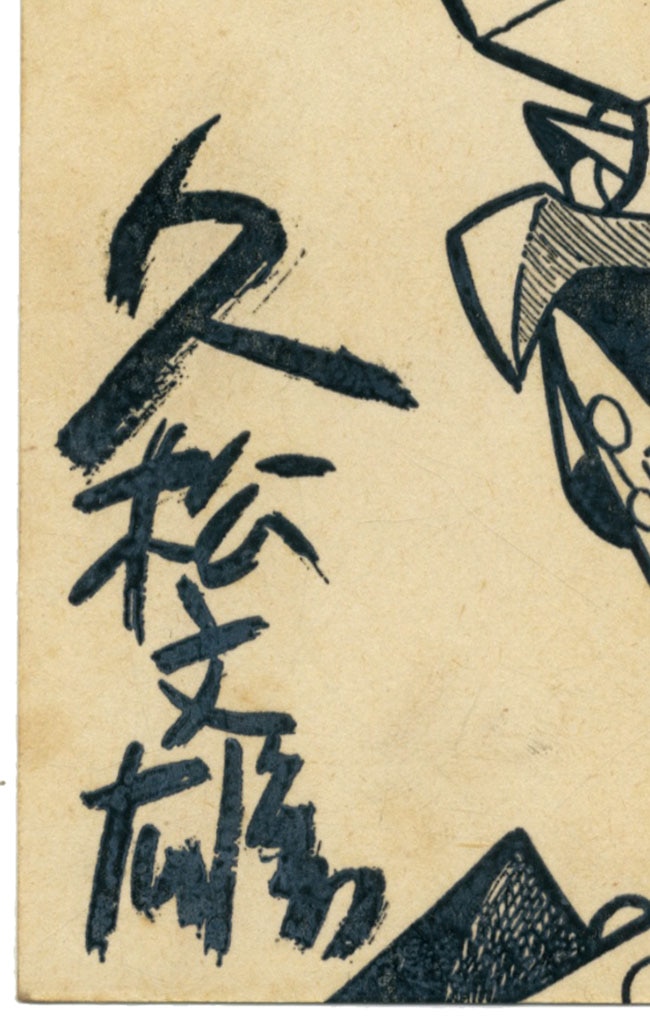 久松文雄